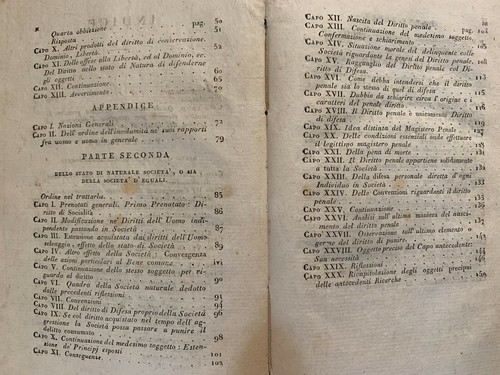 INDICE
pag. 50
Quarta obbiezione . . 51
Risposta . . 52
CAPO X. Altri prodotti del diritto di conservazione.
Dominio, Libertà . .
CAPO XI. Delle offese alla Libertà, ed al Dominio, ec.
Del Diritto nello stato di Natura di difenderne
gli oggetti . . 60
CAPO XII. Continuazione . . 65
CAPO XIII. Avvertimento . . 70
APPENDICE
CAPO I. Nozioni Generali . . 72
CAPO II. Dell'ordine dell'incolumità ne' suoi rapporti
fra uomo e uomo in generale . . 79
PARTE SECONDA
DELLO STATO DI NATURALE SOCIETA', O SIA
DELLA SOCIETA' D'EGUALI.
Ordine nel trattarla. . . 85
CAPO I. Prenotati generali. Primo Prenotato: Diritto
di Socialità . . 86
CAPO II. Modificazione ne' Diritti dell'Uomo indipendente
passando in Società . . 87
CAPO III. Estensione acquistata dai diritti dell'Uomo
selvaggio, effetto dello stato di Società . . 89
CAPO IV. Altro effetto della Società: Convergenza
delle azioni particolari al Bene comune . . ivi
CAPO V. Continuazione dello stesso soggetto per riguardo
al diritto . . 90
CAPO VI. Quadro della Società naturale dedotto
dalle precedenti riflessioni . . 91
CAPO VII. Convenzioni . . 94
CAPO VIII. Del diritto di Difesa proprio della Società 96
CAPO IX. Se col diritto acquistato nel tempo dell'aggressione
la Società possa passare a punire il
delitto consumato . . 98
CAPO X. Continuazione del medesimo soggetto: Estensione
de' Principj esposti . . 101
CAPO XI. Conseguenze. . . 102
CAPO XII. Nascita del Diritto penale . . pag.
CAPO XIII. Continuazione del medesimo soggetto,
Confermazione e schiarimento
CAPO XIV. Situazione morale del delinquente colle
Società riguardante la genesi del Diritto penale.
CAPO XV. Ragguaglio del Diritto penale col Diritto
di Difesa.
CAPO XVI. Come debba intendersi che il diritto
penale sia lo stesso di quel di difesa
CAPO XVII. Dubbio da schiarire circa l'origine e i
caratteri del penale diritto
CAPO XVIII. Il Diritto penale è unicamente Diritto
di difesa
CAPO XIX. Idea distinta del Magistero Penale
CAPO XX. Delle condizioni essenziali onde effettuare
il legittimo magistero penale
CAPO XXI. Della pena di morte
CAPO XXII. Il Diritto penale appartiene solidamente
a tutta la Società
CAPO XXIII. Della difesa personale diretta d'ogni
Individuo in Società
CAPO XXIV. Delle Convenzioni riguardanti il diritto
penale.
CAPO XXV. Continuazione
CAPO XXVI. Analisi sull'ultima maniera del nascimento
del diritto penale
CAPO XXVII. Osservazione sull'ultimo elemento o
germe del diritto di punire.
CAPO XXVIII. Oggetto preciso del Capo antecedente:
Sua necessità
CAPO XXIX. Riflessioni
CAPO XXX. Ricapitolazione degli oggetti precipui
delle antecedenti Ricerche